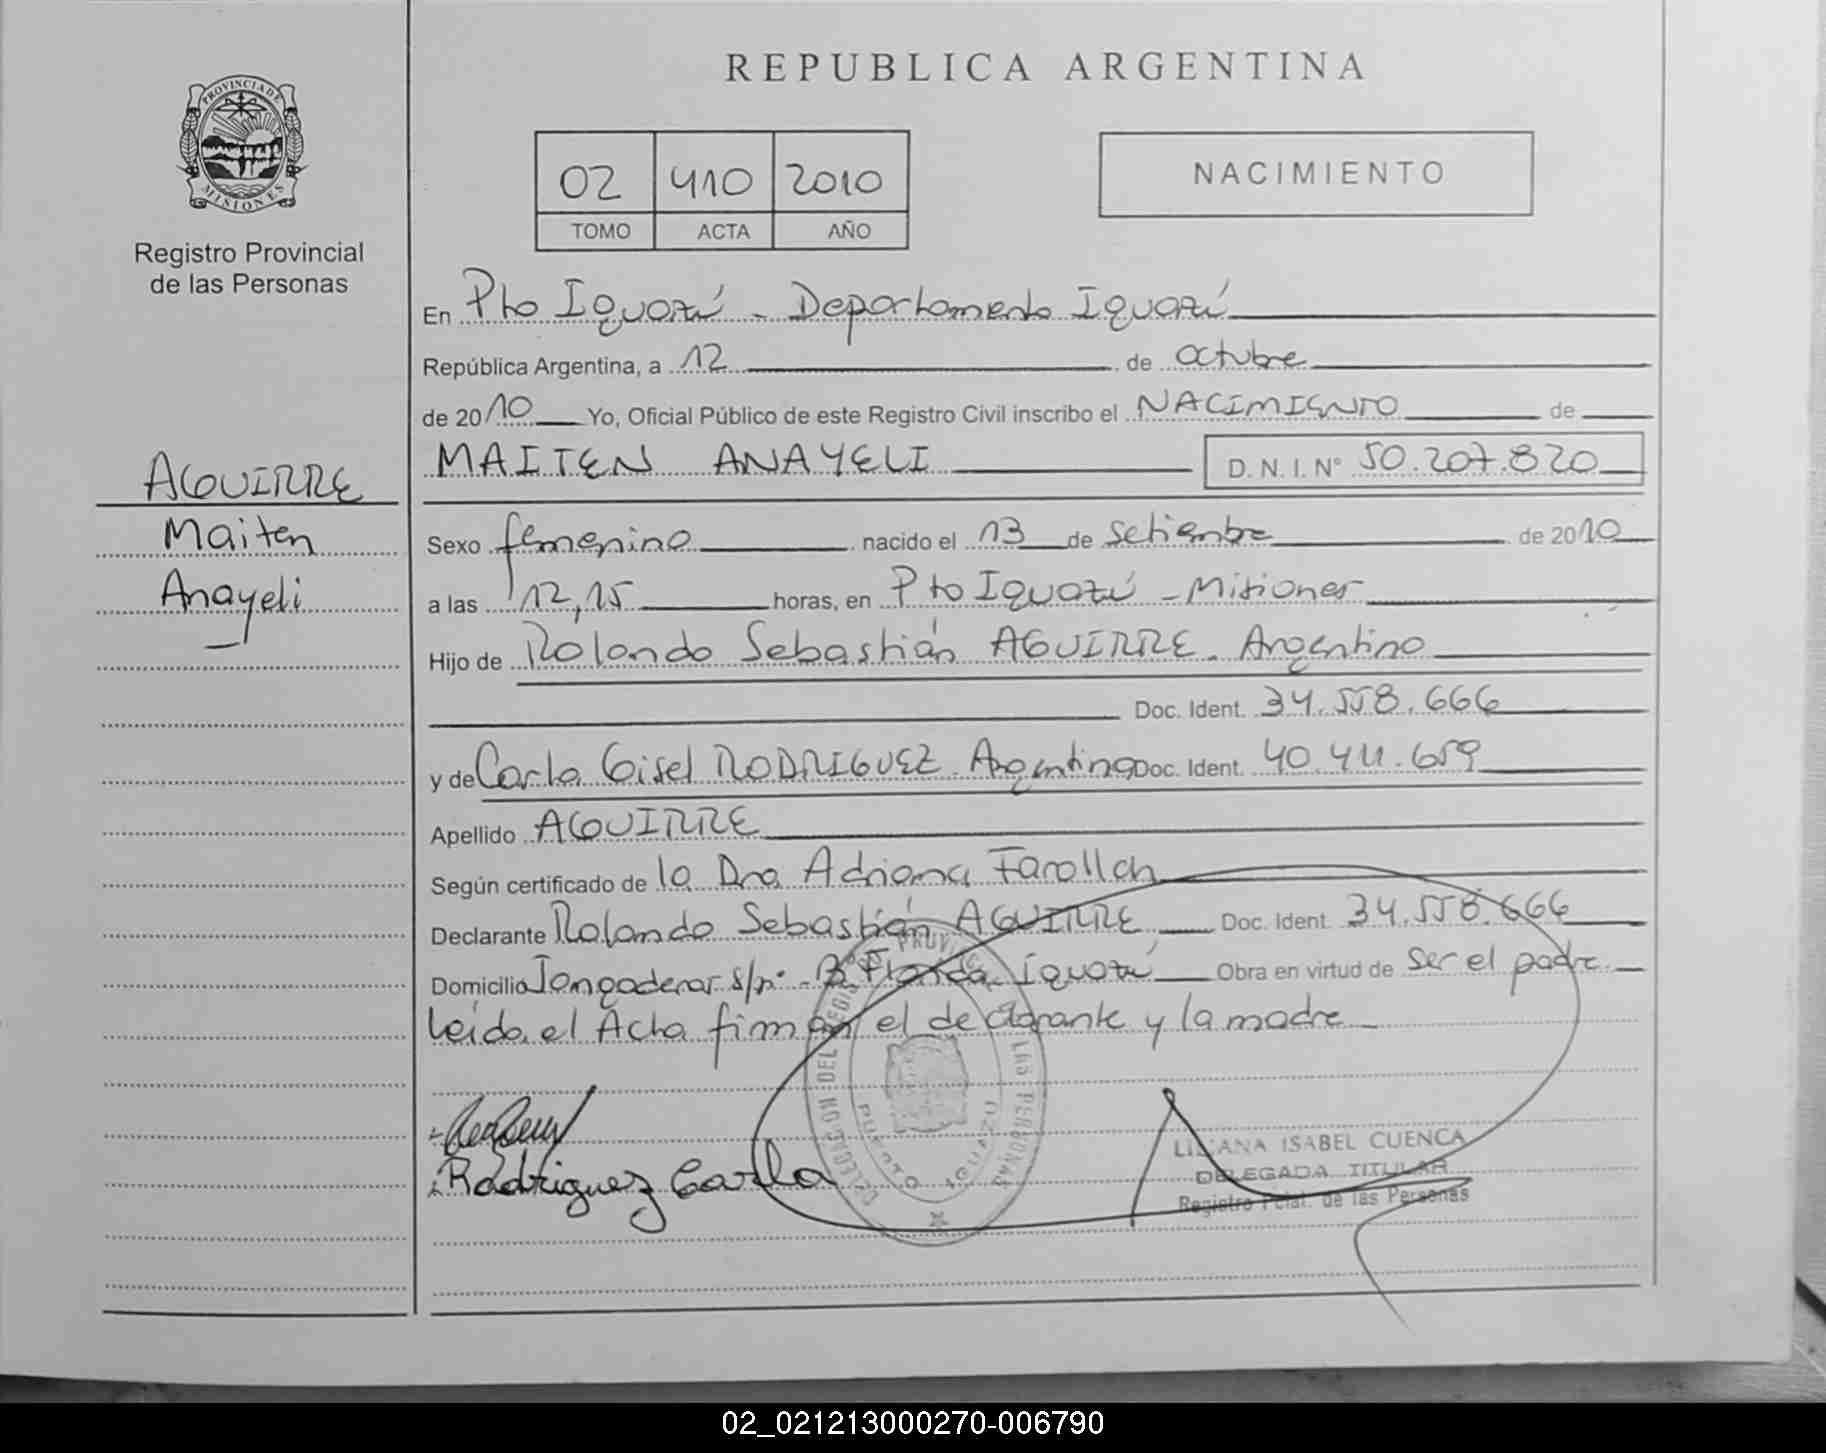 REPUBLICA ARGENTINA
PROVINCIA DE
MISIONES
Registro Provincial
de las Personas
02 410 2010
TOMO ACTA AÑO
NACIMIENTO
En Pto Iguazú - Departamento Iguazú
República Argentina, a 12 de octubre
de 2010 Yo, Oficial Público de este Registro Civil inscribo el NACIMIENTO de
MAITEN ANAYELI D.N.I. N° 50.207.820
AGUIRRE
Maiten
Anayeli
Sexo femenino nacido el 13 de setiembre de 2010
a las 12,15 horas, en Pto Iguazú - Misiones
Hijo de Rolando Sebastián AGUIRRE. Argentino
Doc. Ident. 34.558.666
y de Carla Gisel RODRIGUEZ. Argentina Doc. Ident. 40.411.659
Apellido AGUIRRE
Según certificado de la Dra Adriana
Declarante Rolando Sebastián AGUIRRE Doc. Ident. 34.558.666
Domicilio s/n° - B° Florida Iguazú Obra en virtud de ser el padre.
Leída el Acta firman el declarante y la madre
Rodriguez Carla
DELEGACION DEL REGISTRO PROVINCIAL DE LAS PERSONAS
PUERTO IGUAZU
LILIANA ISABEL CUENCA
DELEGADA TITULAR
Registro Pcial. de las Personas
02_021213000270-006790